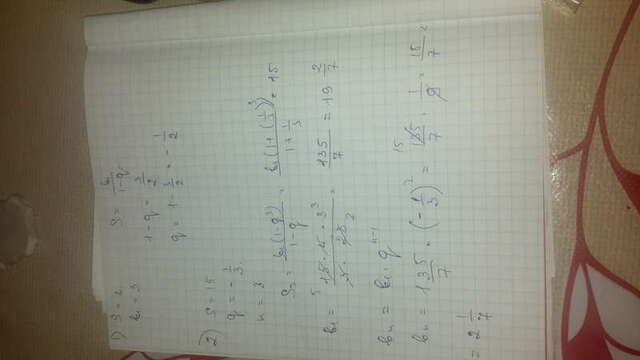 1) S = 2    S = b₁/(1-q)
b₁ = 3    1-q = 3/2
q = 1 - 3/2 = -1/2
2) S = 15
q = -1/3
n = 3
S₃ = b₁(1-q³)/(1-q) = b₁(1+(1/3)³)/(1+1/3) = 15
= 135/7 = 19 2/7
bₙ = b₁ · qⁿ⁻¹
bₙ = 135/7 · (-1/3)² = 135/7 · 1/9 = 15/7 =
= 2 1/7